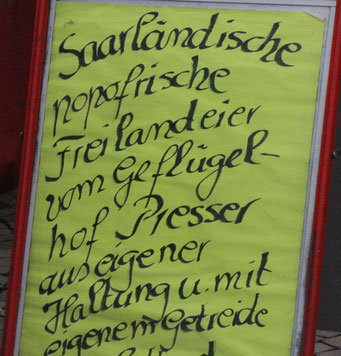 Saarländische
popofrische
Freilandeier
vom Geflügel-
hof Presser
aus eigener
Haltung u. mit
eigenem Getreide